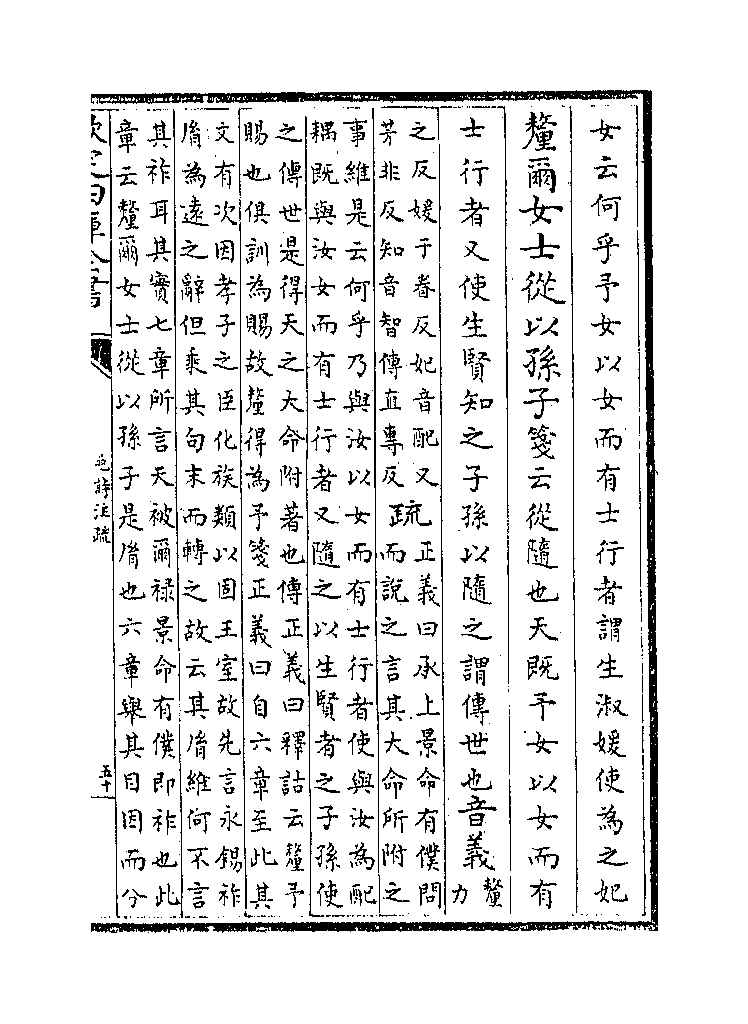 女云何乎予女以女而有士行者謂生淑媛使為之妃
釐爾女士從以孫子箋云從隨也天既予女以女而有
士行者又使生賢知之子孫以隨之謂傳世也音義釐力
之反媛于眷反妃音配又
芳非反知音智傳直專反
疏
正義曰承上景命有僕問
而說之言其大命所附之
事維是云何乎乃與汝以女而有士行者使與汝為配
耦既與汝女而有士行者又隨之以生賢者之子孫使
之傳世是得天之大命附著也傳正義曰釋詁云釐予
賜也俱訓為賜故釐得為予箋正義曰自六章至此其
文有次因孝子之臣化族類以固王室故先言永錫祚
胤為遠之辭但乘其句末而轉之故云其胤維何不言
其祚耳其實七章所言天被爾祿景命有僕即祚也此
章云釐爾女士從以孫子是胤也六章舉其目因而分
欽定四庫全書
毛詩注疏
五十